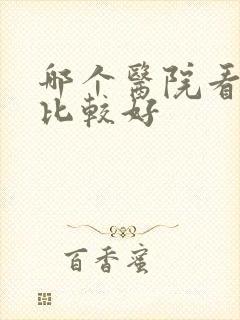 哪个醫院看
比較好
百香蜜